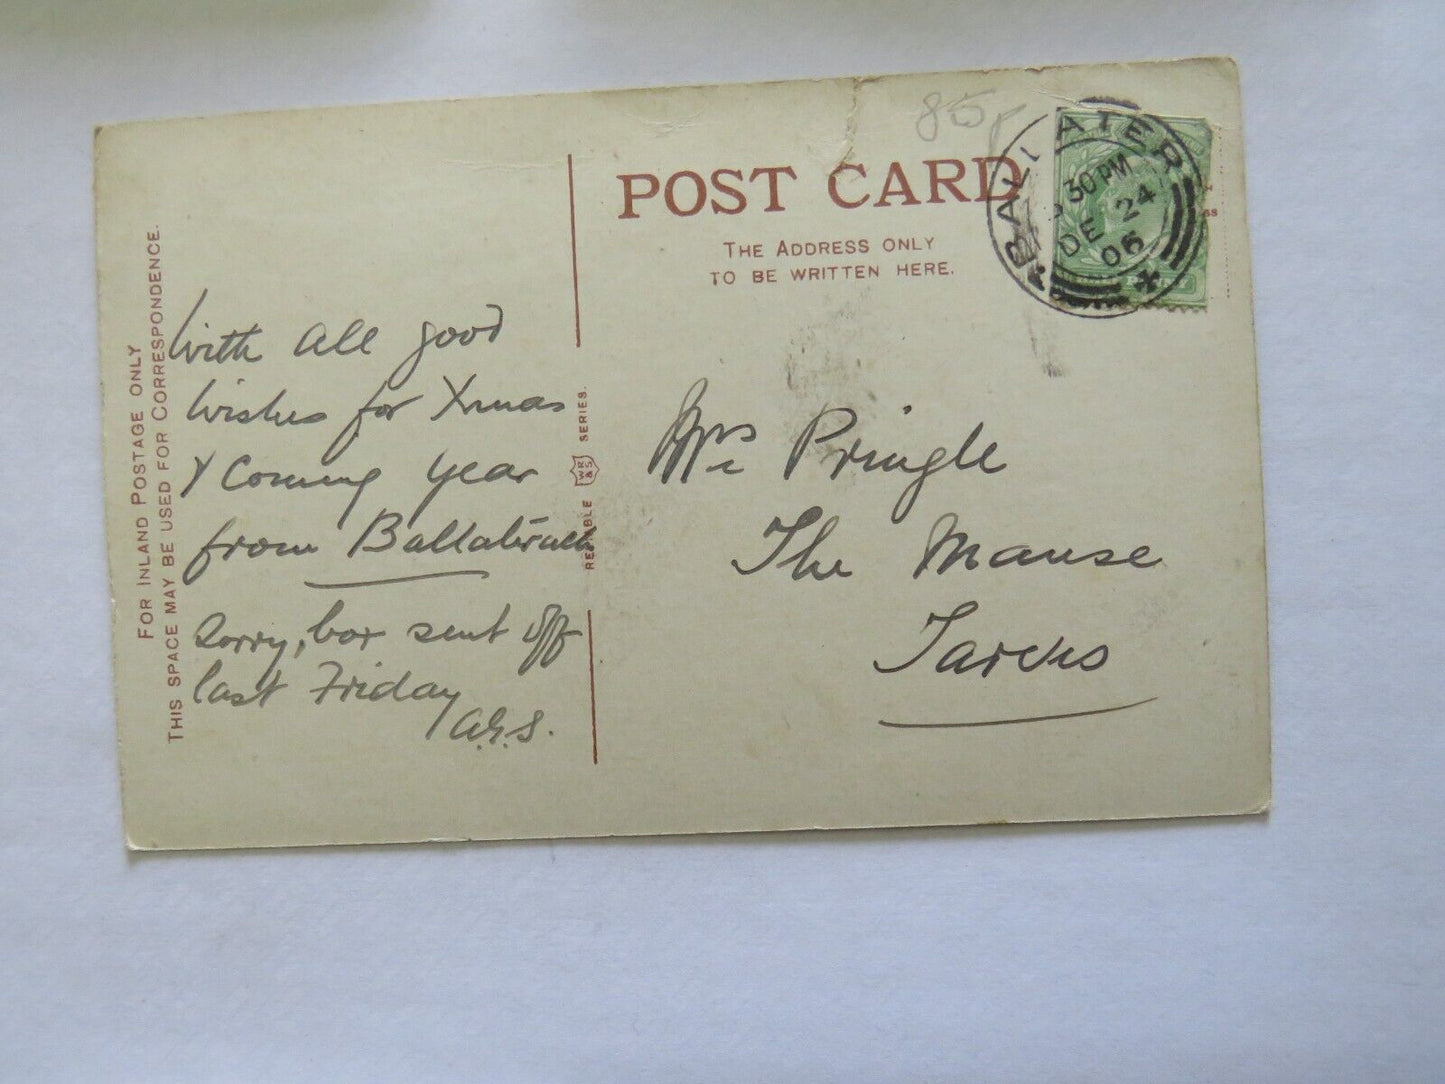 FOR INLAND POSTAGE ONLY
THIS SPACE MAY BE USED FOR CORRESPONDENCE.
With all good
wishes for Xmas
& Coming year
from Ballatrach
Sorry, box sent off
last Friday
A.G.S.
RELIABLE WR&S SERIES.
POST CARD
THE ADDRESS ONLY
TO BE WRITTEN HERE.
85p
BALLATER
30 PM
DE 24
06
Mrs Pringle
The Manse